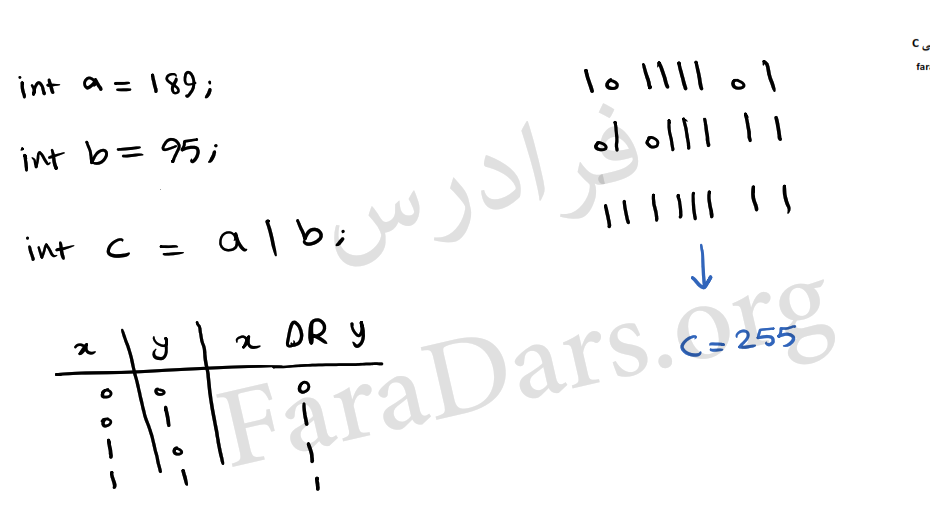 int a = 189;
int b = 95;
int c = a | b;
x y x OR y
0 0 0
0 1 1
1 0 1
1 1 1
10111101
01011111
11111111
c = 255
فرادرس
FaraDars.org
C
fara